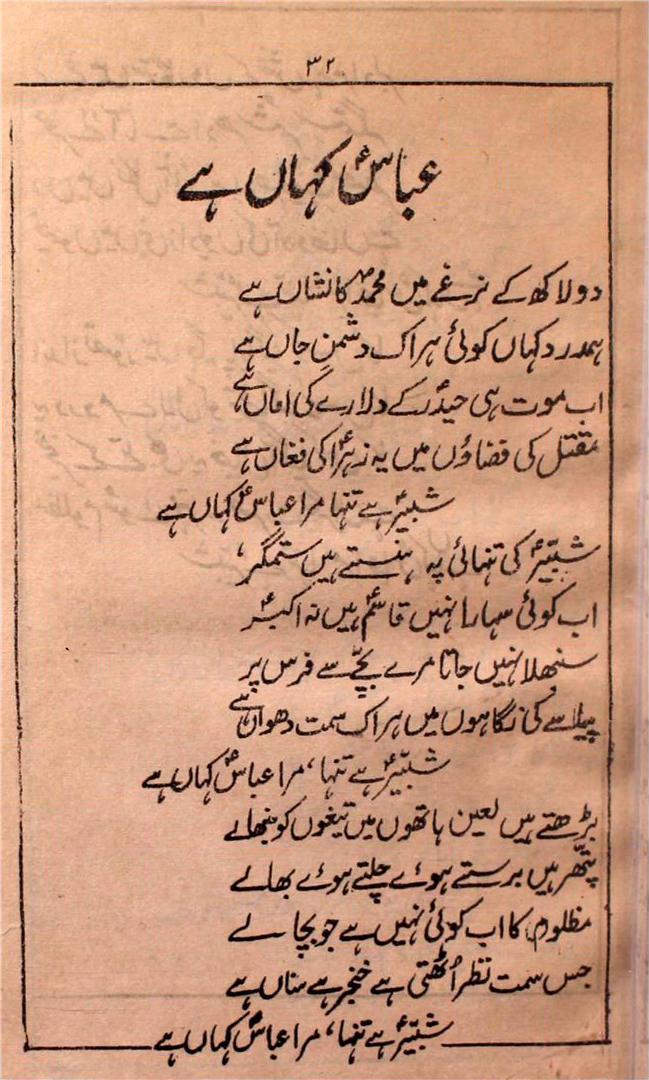 ۳۲
عباسؑ کہاں ہے
دو لاکھ کے نرغے میں محمدؐ کا نشاں ہے
ہمدرد کہاں کوئی ہر اک دشمنِ جاں ہے
اب موت ہی حیدرؑ کے دلارے کی اماں ہے
مقتل کی فضاؤں میں یہ زہراؑ کی فغاں ہے
شبیرؑ ہے تنہا مرا عباسؑ کہاں ہے
شبیرؑ کی تنہائی پہ ہنستے ہیں ستمگر
اب کوئی سہارا نہیں قاسمؑ ہیں نہ اکبرؑ
سنبھلا نہیں جاتا مرے بچّے سے فرس پر
پیاسے کی نگاہوں میں ہر اک سمت دھواں ہے
شبیرؑ ہے تنہا، مرا عباسؑ کہاں ہے
بڑھتے ہیں لعین ہاتھوں میں تیغوں کو سنبھالے
پتّھر ہیں برستے ہوئے چلتے ہوئے بھالے
مظلوم کا اب کوئی نہیں ہے جو بچا لے
جس سمت نظر اُٹھتی ہے خنجر ہے سناں ہے
شبیرؑ ہے تنہا، مرا عباسؑ کہاں ہے